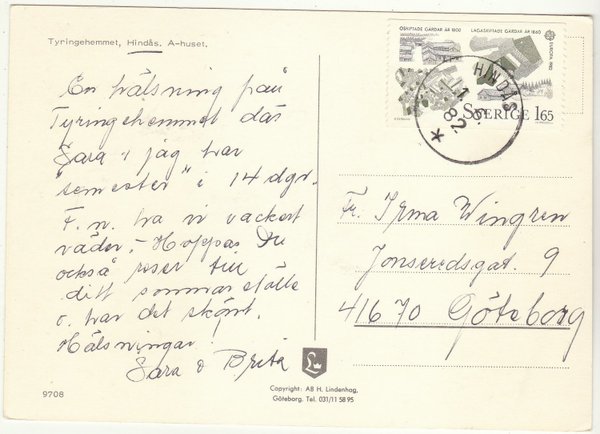 Tyringehemmet, Hindås. A-huset.
En hälsning från
Tyringehemmet där
Sara o jag har
"semester" i 14 dgr.
F.n. ha vi vackert
väder, - Hoppas Du
också reser till
ditt sommarställe
o. har det skönt.
Hälsningar
Sara o Brita
9708
Copyright: AB H. Lindenhag,
Göteborg. Tel. 031/11 58 95
OSKIFTADE GÅRDAR ÅR 1800
LAGASKIFTADE GÅRDAR ÅR 1860
EUROPA 1982
SVERIGE 1.65
HINDÅS
82
Fr. Irma Wingren
Jonseredsgat. 9
41670 Göteborg